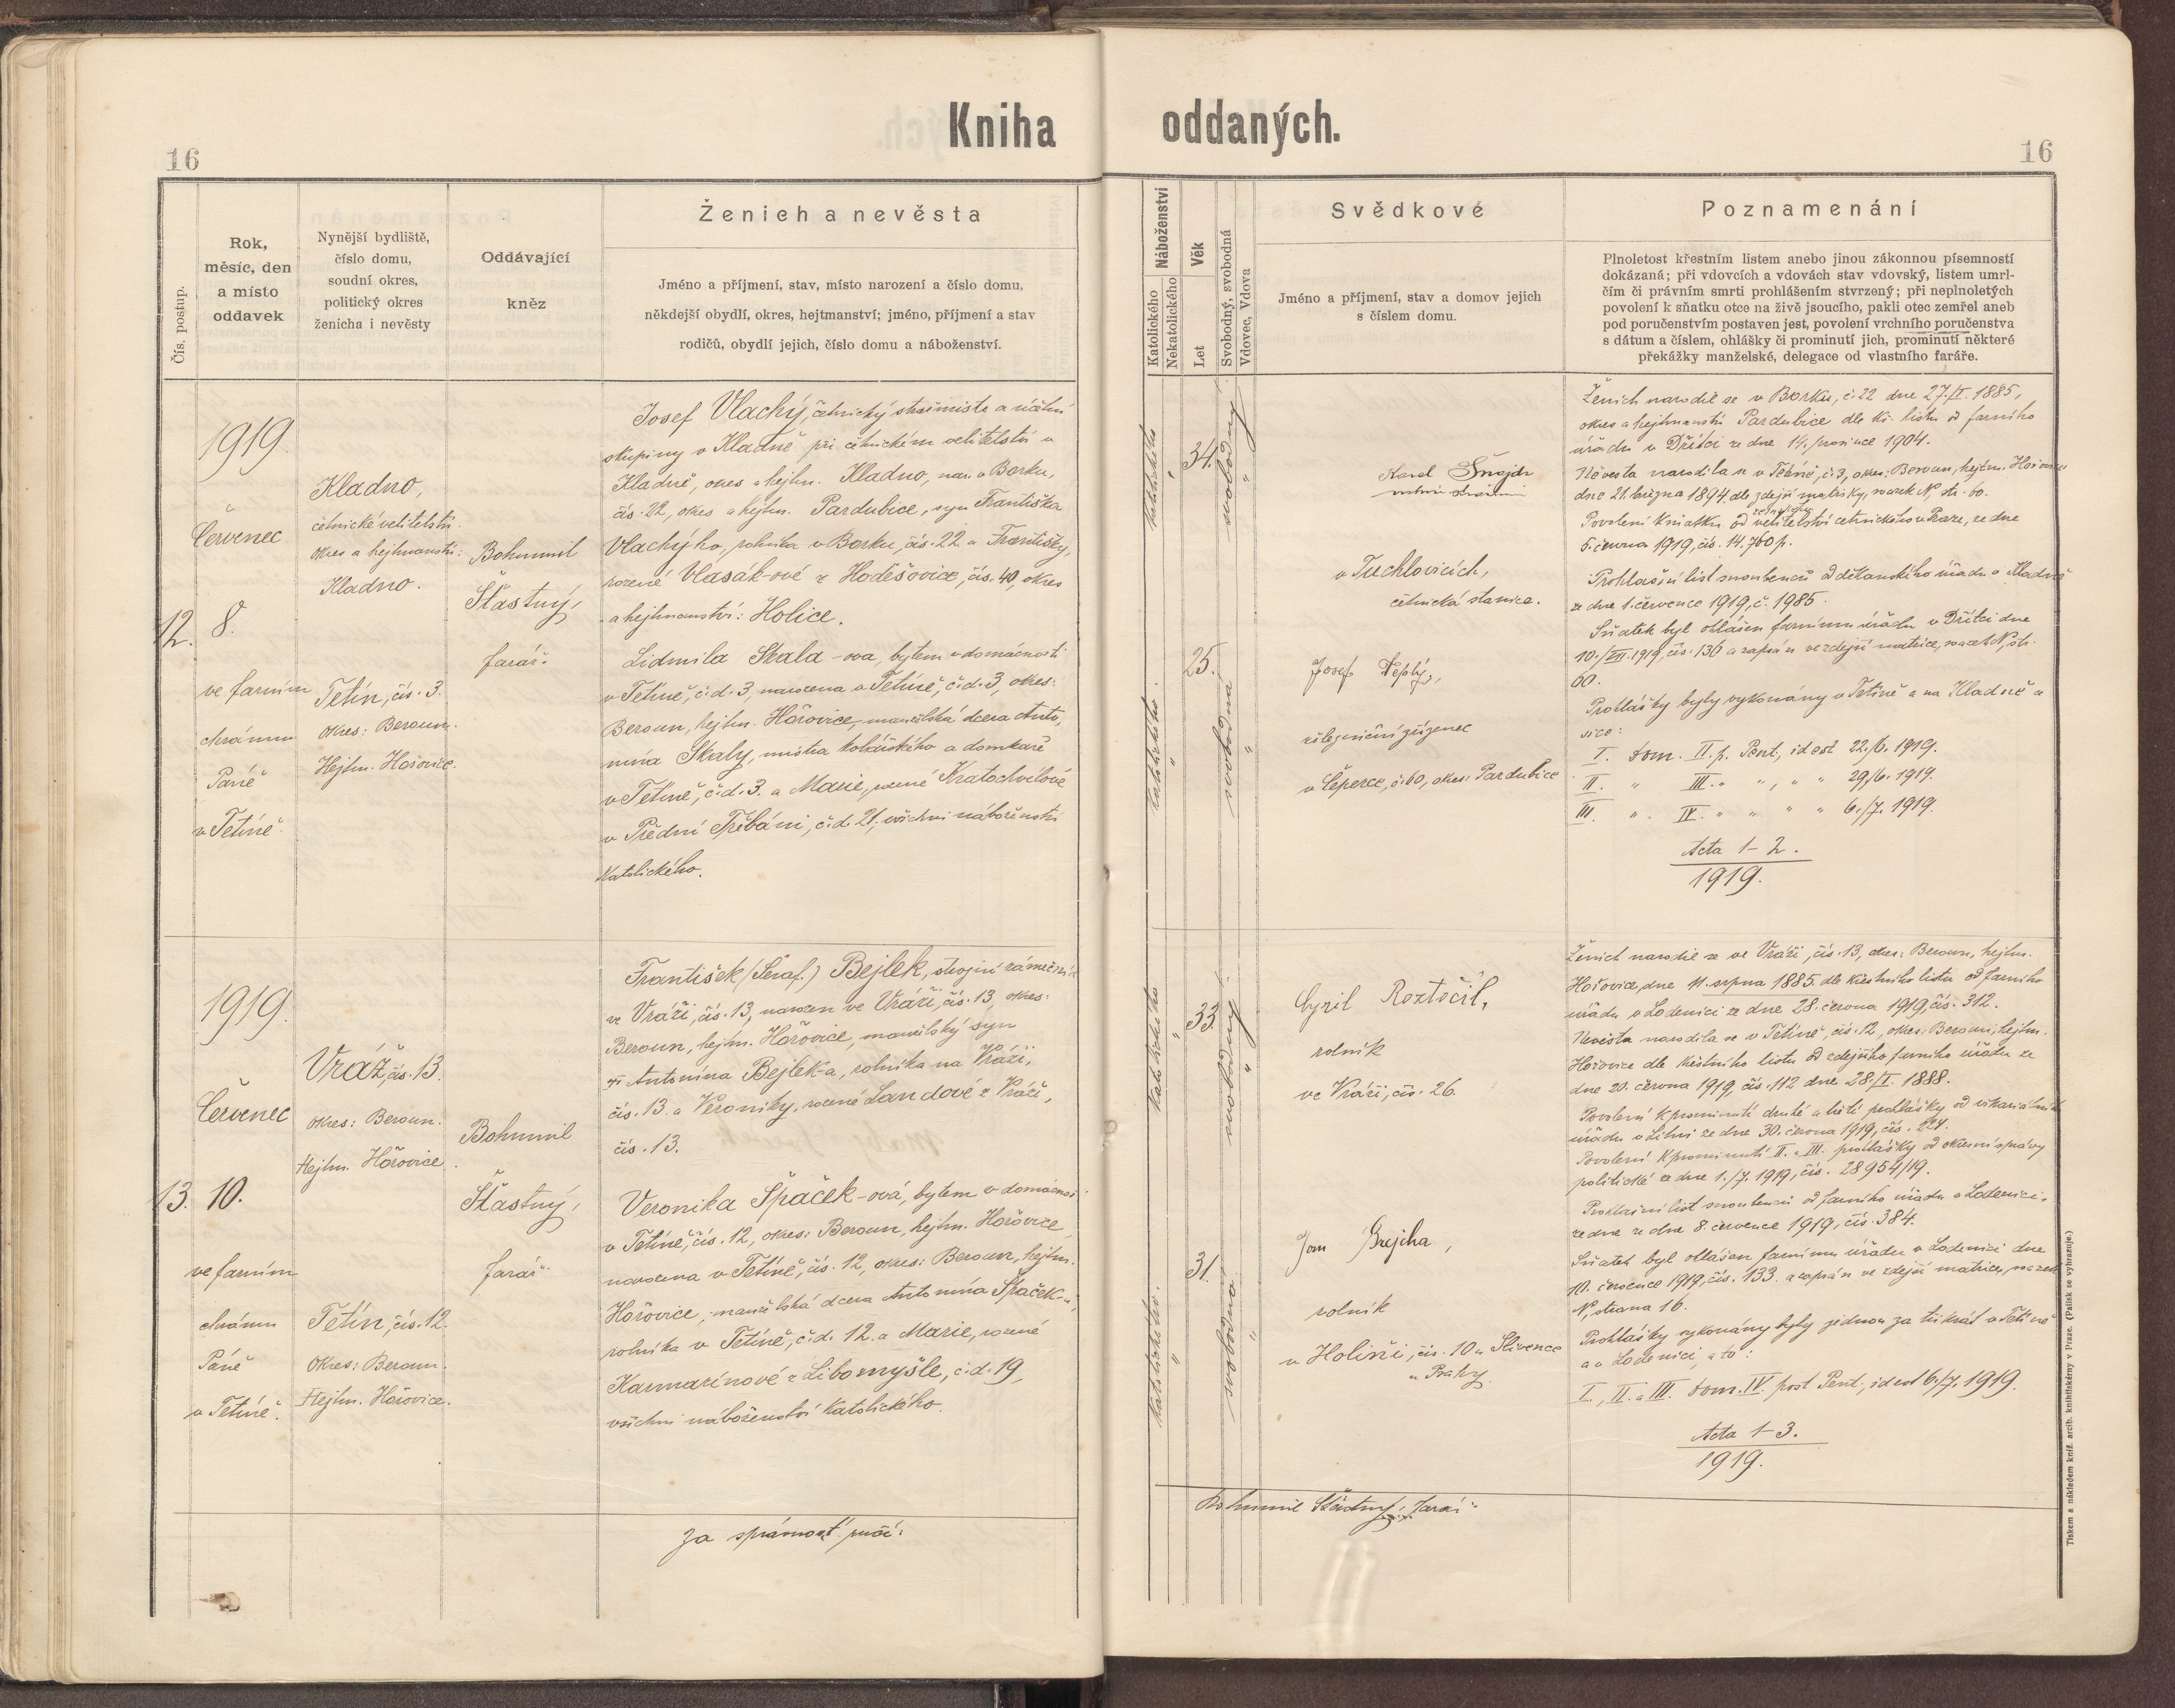 Kniha oddaných.
16
16
Čís. postup.
Rok,
měsíc, den
a místo
oddavek
Nynější bydliště,
číslo domu,
soudní okres,
politický okres
ženicha i nevěsty
Oddávající
kněz
Ženich a nevěsta
Jméno a příjmení, stav, místo narození a číslo domu,
někdejší obydlí, okres, hejtmanství; jméno, příjmení a stav
rodičů, obydlí jejich, číslo domu a náboženství.
Náboženství
Katolického
Nekatolického
Věk
Let
Svobodný, svobodná
Vdovec, Vdova
Svědkové
Jméno a příjmení, stav a domov jejich
s číslem domu.
Poznamenání
Plnoletost křestním listem anebo jinou zákonnou písemností
dokázaná; při vdovcích a vdovách stav vdovský, listem umrl-
čím či právním smrti prohlášením stvrzený; při neplnoletých
povolení k sňatku otce na živě jsoucího, pakli otec zemřel aneb
pod poručenstvím postaven jest, povolení vrchního poručenstva
s dátum a číslem, ohlášky či prominutí jich, prominutí některé
překážky manželské, delegace od vlastního faráře.
12.
1919.
Červenec
8.
ve farním
chrámu
Páně
v Tetíně.
Kladno,
četnické velitelství.
okres a hejtmanství:
Kladno.
Tetín, čís. 3.
okres: Beroun.
Hejtm. Hořovice.
Bohumil
Šťastný,
farář.
Josef Vlachý, četnický strážmistr a účetní
skupiny v Kladně při četnickém velitelství v
Kladně, okres a hejtm. Kladno, nar. v Borku,
čís. 22, okres a hejtm. Pardubice, syn Františka
Vlachýho, rolníka v Borku, čís. 22. a Františky,
rozené Vlasák-ové z Hoděšovice, čís. 40, okres
a hejtmanství: Holice.
Lidmila Skala-ova, bytem v domácnosti
v Tetíně, č.d. 3, narozena v Tetíně, č.d. 3, okres:
Beroun, hejtm. Hořovice, manželská dcera Anto,
nína Skaly, mistra kolářského a domkaře
v Tetíně, č.d. 3. a Marie, rozené Kratochvílové
v Přední Třebáni, č.d. 21, všichni náboženství
Katolického.
katolického
"
34.
svobodný
"
katolického.
"
25.
svobodná
"
Karel Šnajdr
v Tuchlovicích,
četnická stanice.
Josef Teplý,
železniční zřízenec
v Čeperce, č. 60, okres: Pardubice
Ženich narodil se v Borku, č. 22 dne 27./I. 1885,
okres a hejtmanství Pardubice dle kř. listu od farního
úřadu v Dřítči ze dne 14. prosince 1904.
Nevěsta narodila se v Tetíně, č. 3, okres: Beroun, hejtm. Hořovice
dne 21. března 1894. dle zdejší matriky, svazek N, str. 60.
Povolení k sňatku od zemského velitelství četnického v Praze, ze dne
5. června 1919, čís. 14.760 p.
Prohlašní list snoubenců od děkanského úřadu v Kladně
ze dne 1. července 1919, č. 1985.
Sňatek byl ohlášen farnímu úřadu v Dřítči dne
10./VII. 1919, čís. 136 a zapsán ve zdejší matrice, svazek N, str.
60.
Prohlášky byly vykonány v Tetíně a na Kladně a
sice:
I. Dom. II. p. Pent, id est 22./6. 1919.
II. " III. " ", " " 29./6. 1919.
III. " IV. " " " " 6./7. 1919.
Acta 1-2.
1919.
13.
1919.
Červenec
10.
ve farním
chrámu
Páně
v Tetíně.
Vráž, čís. 13.
okres: Beroun.
Hejtm. Hořovice.
Tetín, čís. 12.
Okres: Beroun.
Hejtm. Hořovice.
Bohumil
Šťastný,
farář
František (Seraf.) Bejlek, strojní zámečník
ve Vráži, čís. 13, narozen ve Vráži, čís. 13, okres:
Beroun, hejtm. Hořovice, manželský syn
Antonína Bejlek-a, rolníka na Vráži,
čís. 13. a Veroniky, rozené Landové z Vráže,
čís. 13.
Veronika Špaček-ová, bytem v domácnosti
v Tetíně, čís. 12, okres: Beroun, hejtm. Hořovice,
narozena v Tetíně, čís. 12, okres: Beroun, hejtm.
Hořovice, manželská dcera Antonína Špaček-a,
rolníka v Tetíně, č.d. 12. a Marie, rozené
Karmazínové z Libomyšle, č.d. 19,
všichni náboženství katolického.
katolického
"
33.
svobodný
"
katolického.
"
31.
svobodná
"
Cyril Roztočil,
rolník
ve Vráži, čís. 26.
Jan Brejcha,
rolník
v Holíni, čís. 10 u Slivence
u Prahy.
Ženich narodil se ve Vráži, čís. 13, okres: Beroun, hejtm.
Hořovice, dne 11. srpna 1885. dle křestního listu od farního
úřadu v Loděnici ze dne 28. června 1919, čís. 312.
Nevěsta narodila se v Tetíně, čís. 12, okres: Beroun, hejtm.
Hořovice dle křestního listu od zdejšího farního úřadu ze
dne 20. června 1919, čís. 112 dne 28./I. 1888.
Povolení k prominutí druhé a třetí prohlášky od vikariátního
úřadu v Litni ze dne 30. června 1919, čís. 224.
Povolení k prominutí II. a III. prohlášky od okresní správy
politické ze dne 1./7. 1919, čís. 28954/19.
Prohlašní list snoubenců od farního úřadu v Loděnici,
ze dne ze dne 8. července 1919, čís. 384.
Sňatek byl ohlášen farnímu úřadu v Loděnici dne
10. července 1919, čís. 133. a zapsán ve zdejší matrice, svazek
N, strana 16.
Prohlášky vykonány byly jednou za třikrát v Tetíně
a v Loděnici, a to:
I., II. a III. Dom. IV. post Pent., id est 6./7. 1919.
Acta 1-3.
1919.
Za správnost ručí:
Bohumil Šťastný, farář.
Tiskem a nákladem kníž. arcib. knihtiskárny v Praze. (Patisk se vyhrazuje.)